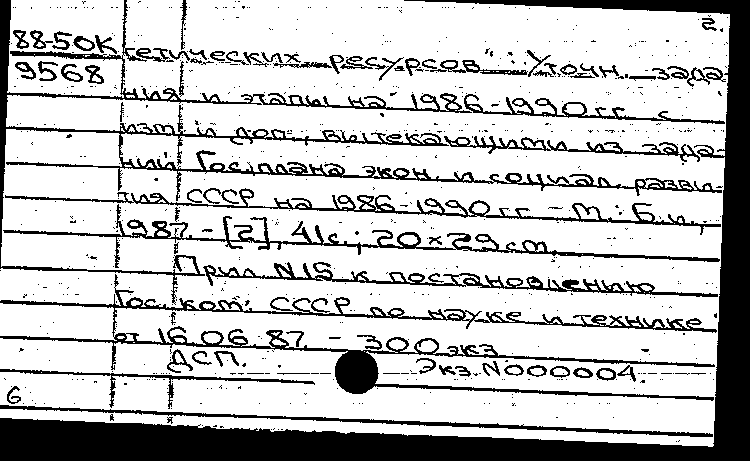 2.
88-50К гетических ресурсов": Уточн. зада-
9568
ния и этапы на 1986-1990 гг. с
изм. и доп., вытекающими из зада-
ний Госплана экон. и социал. разви-
тия СССР на 1986-1990 гг. - М.: Б.и.,
1987. - [2], 41 с.; 20×29 см.
Прил. N15 к постановлению
Гос. ком. СССР по науке и технике
от 16.06.87. - 300 экз.
ДСП. Экз. N000004.
6